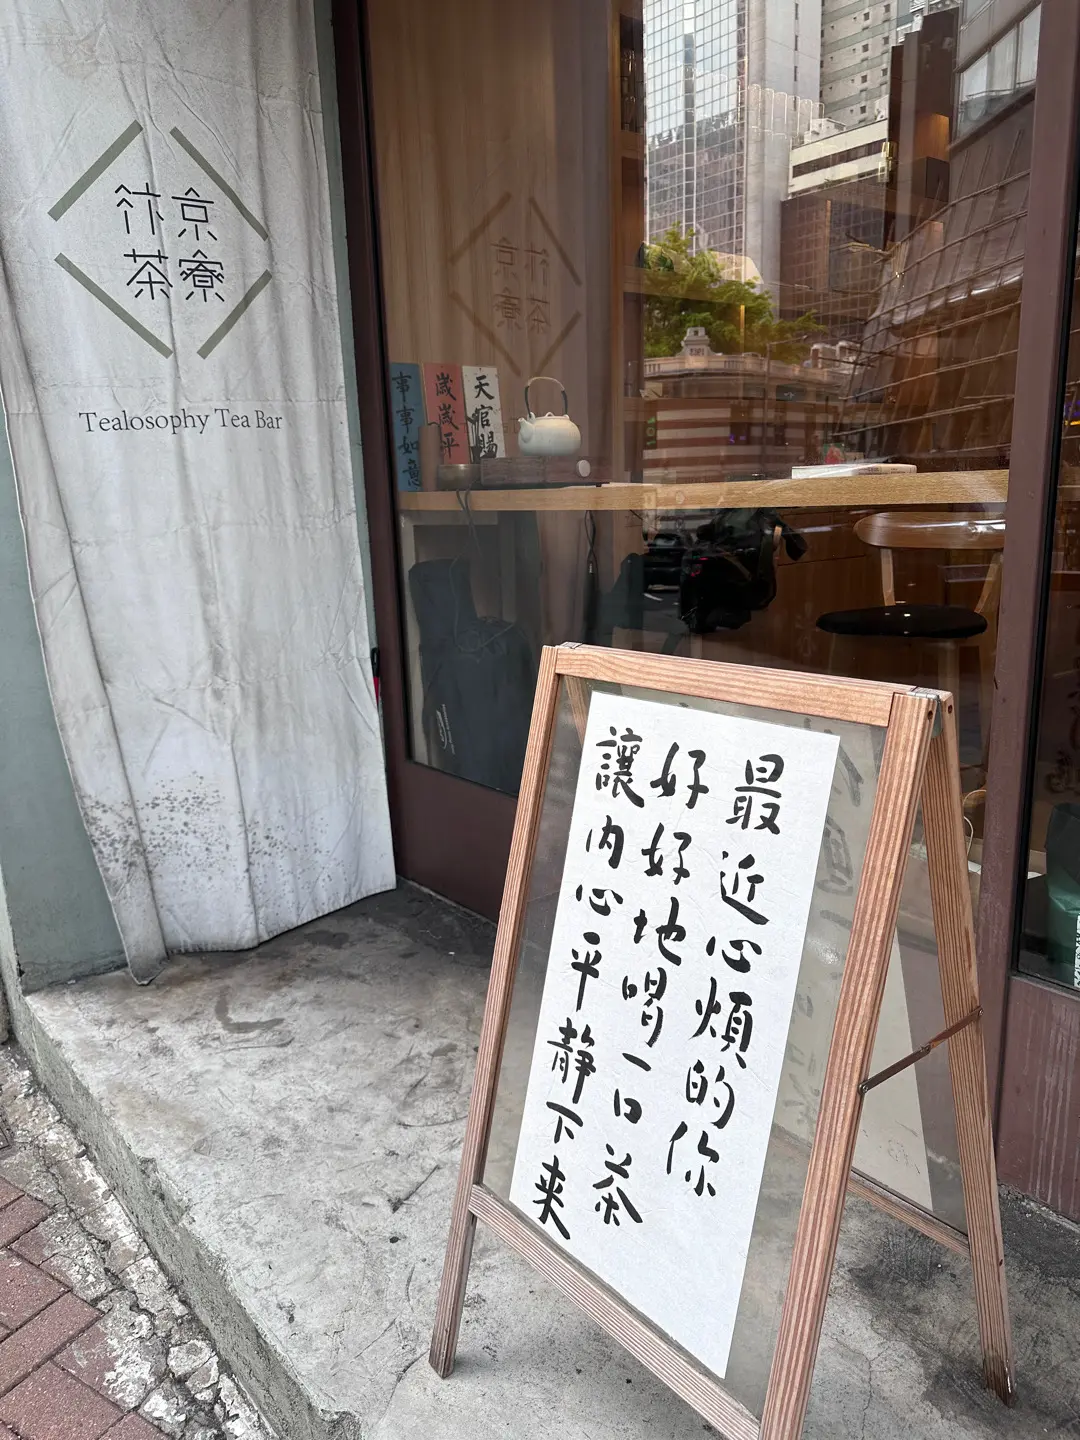 汴京
茶寮
Tealosophy Tea Bar
事事如意
歲歲平
天官賜
最近心煩的你
好好地喝一口茶
讓內心平靜下来